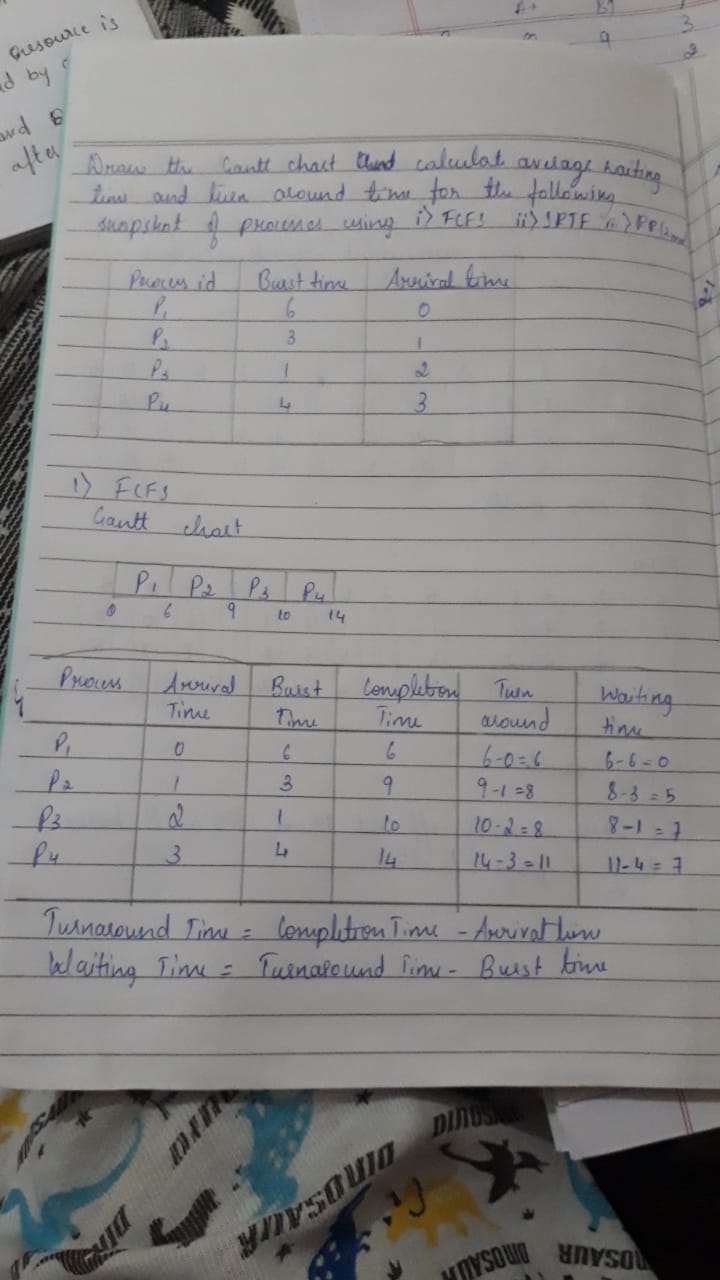 resource is
d by
and
after
A+
BT
3
9
2
Draw the Gantt chart and calculat average waiting
time and turn around time for the following
snapshot of processes using i) FCFS ii) SRTF iii)
Process id Burst time Arrival time
P1 6 0
P2 3 1
P3 1 2
P4 4 3
1) FCFS
Gantt chart
P1 P2 P3 P4
0 6 9 10 14
Process Arrival Burst Completion Turn Waiting
Time Time Time around time
P1 0 6 6 6-0=6 6-6=0
P2 1 3 9 9-1=8 8-3=5
P3 2 1 10 10-2=8 8-1=7
P4 3 4 14 14-3=11 11-4=7
Turnaround Time = Completion Time - Arrival time
Waiting Time = Turnaround Time - Burst time
DINOSAUR
DINOSAUR
DINO
DINOSAUR
DINOSAUR